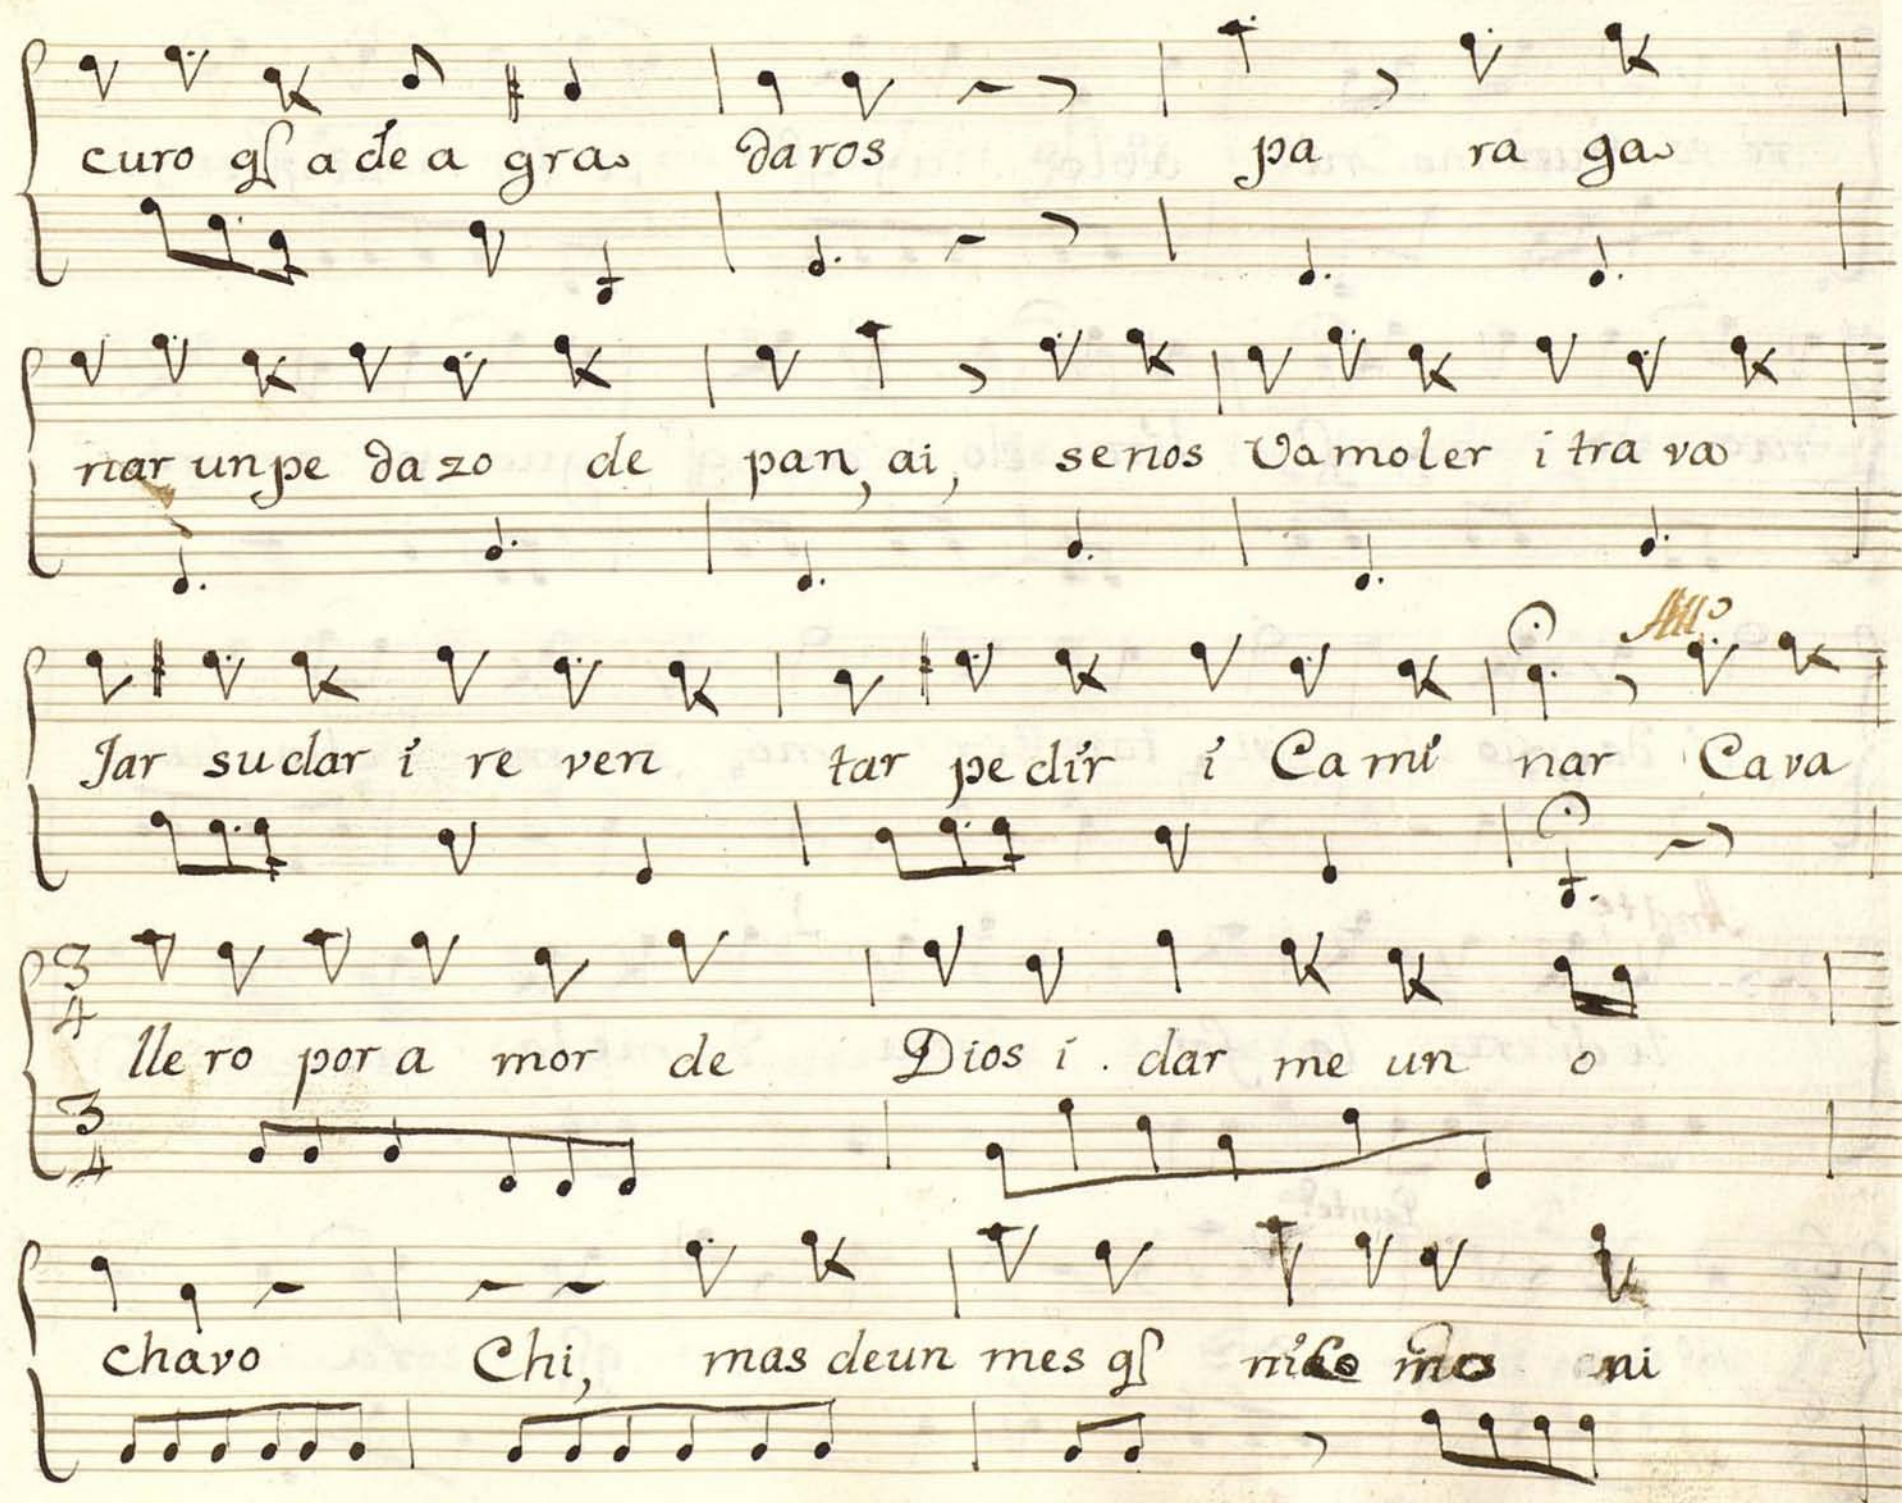 curo qſ a de a gra daros pa ra ga
nar un pe dazo de pan, ai, senos Vamoler i tra va
Jar sudar i re ven tar pedir i Cami nar Cava
Allo
3 4
llero por a mor de Dios i. dar me un o
3 4
chavo Chi, mas deun mes qſ ni